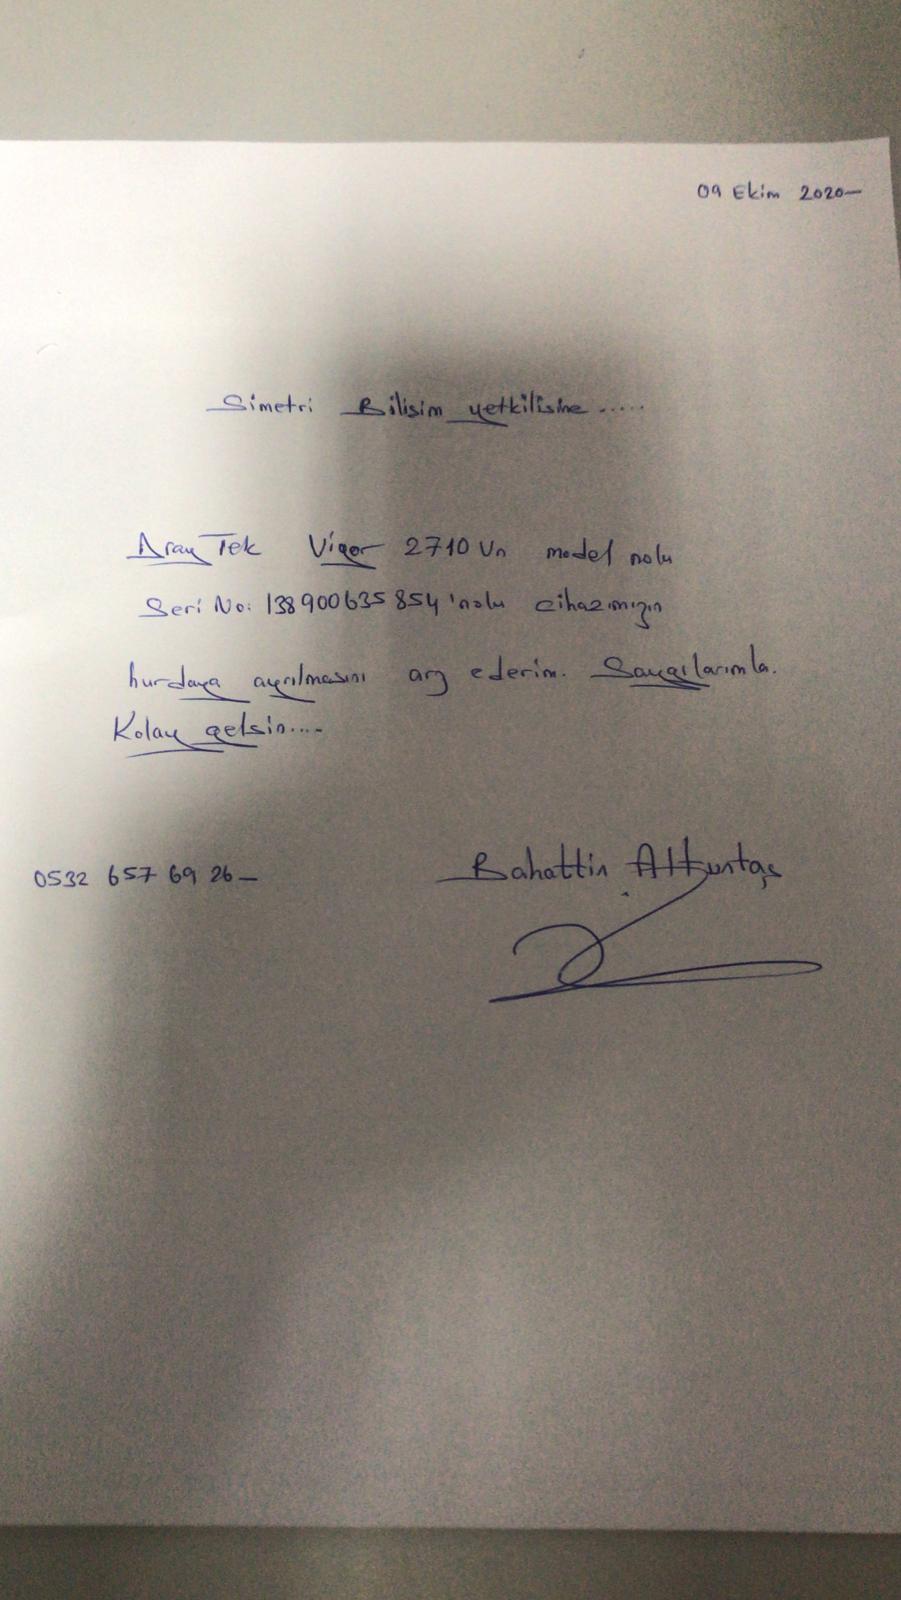 09 Ekim 2020—
Simetri Bilisim yetkilisine.....
DrayTek Vigor 2710 Vn model nolu
Seri No: 138900635854'nolu cihazımızın
hurdaya ayrılmasını arz ederim. Saygılarımla.
Kolay gelsin....
0532 657 69 26—
Bahattin Altuntaş